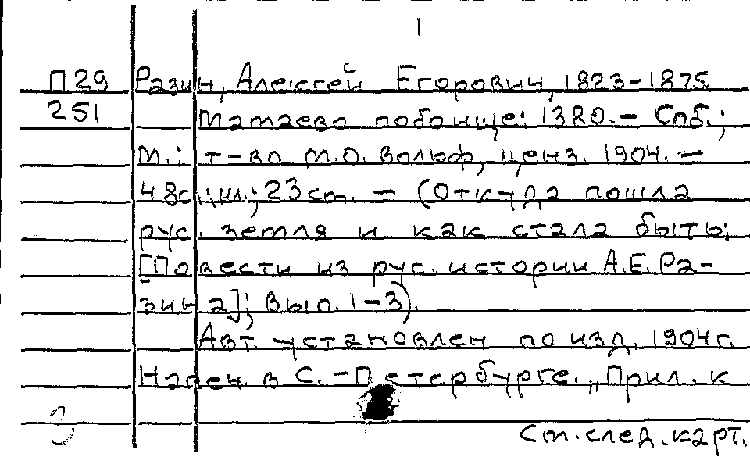 1
П29 Разин, Алексей Егорович, 1823-1875.
251 Мамаево побоище: 1380. – Спб.;
М.: т-во М.О. Вольф, ценз. 1904. –
48с.: ил.; 23см. – (Откуда пошла
рус. земля и как стала быть;
[Повести из рус. истории А.Е. Ра-
зина]; Вып. 1-3).
Авт. установлен по изд. 1904г.
Напеч. в С.-Петербурге. „Прил. к
См. след. карт.